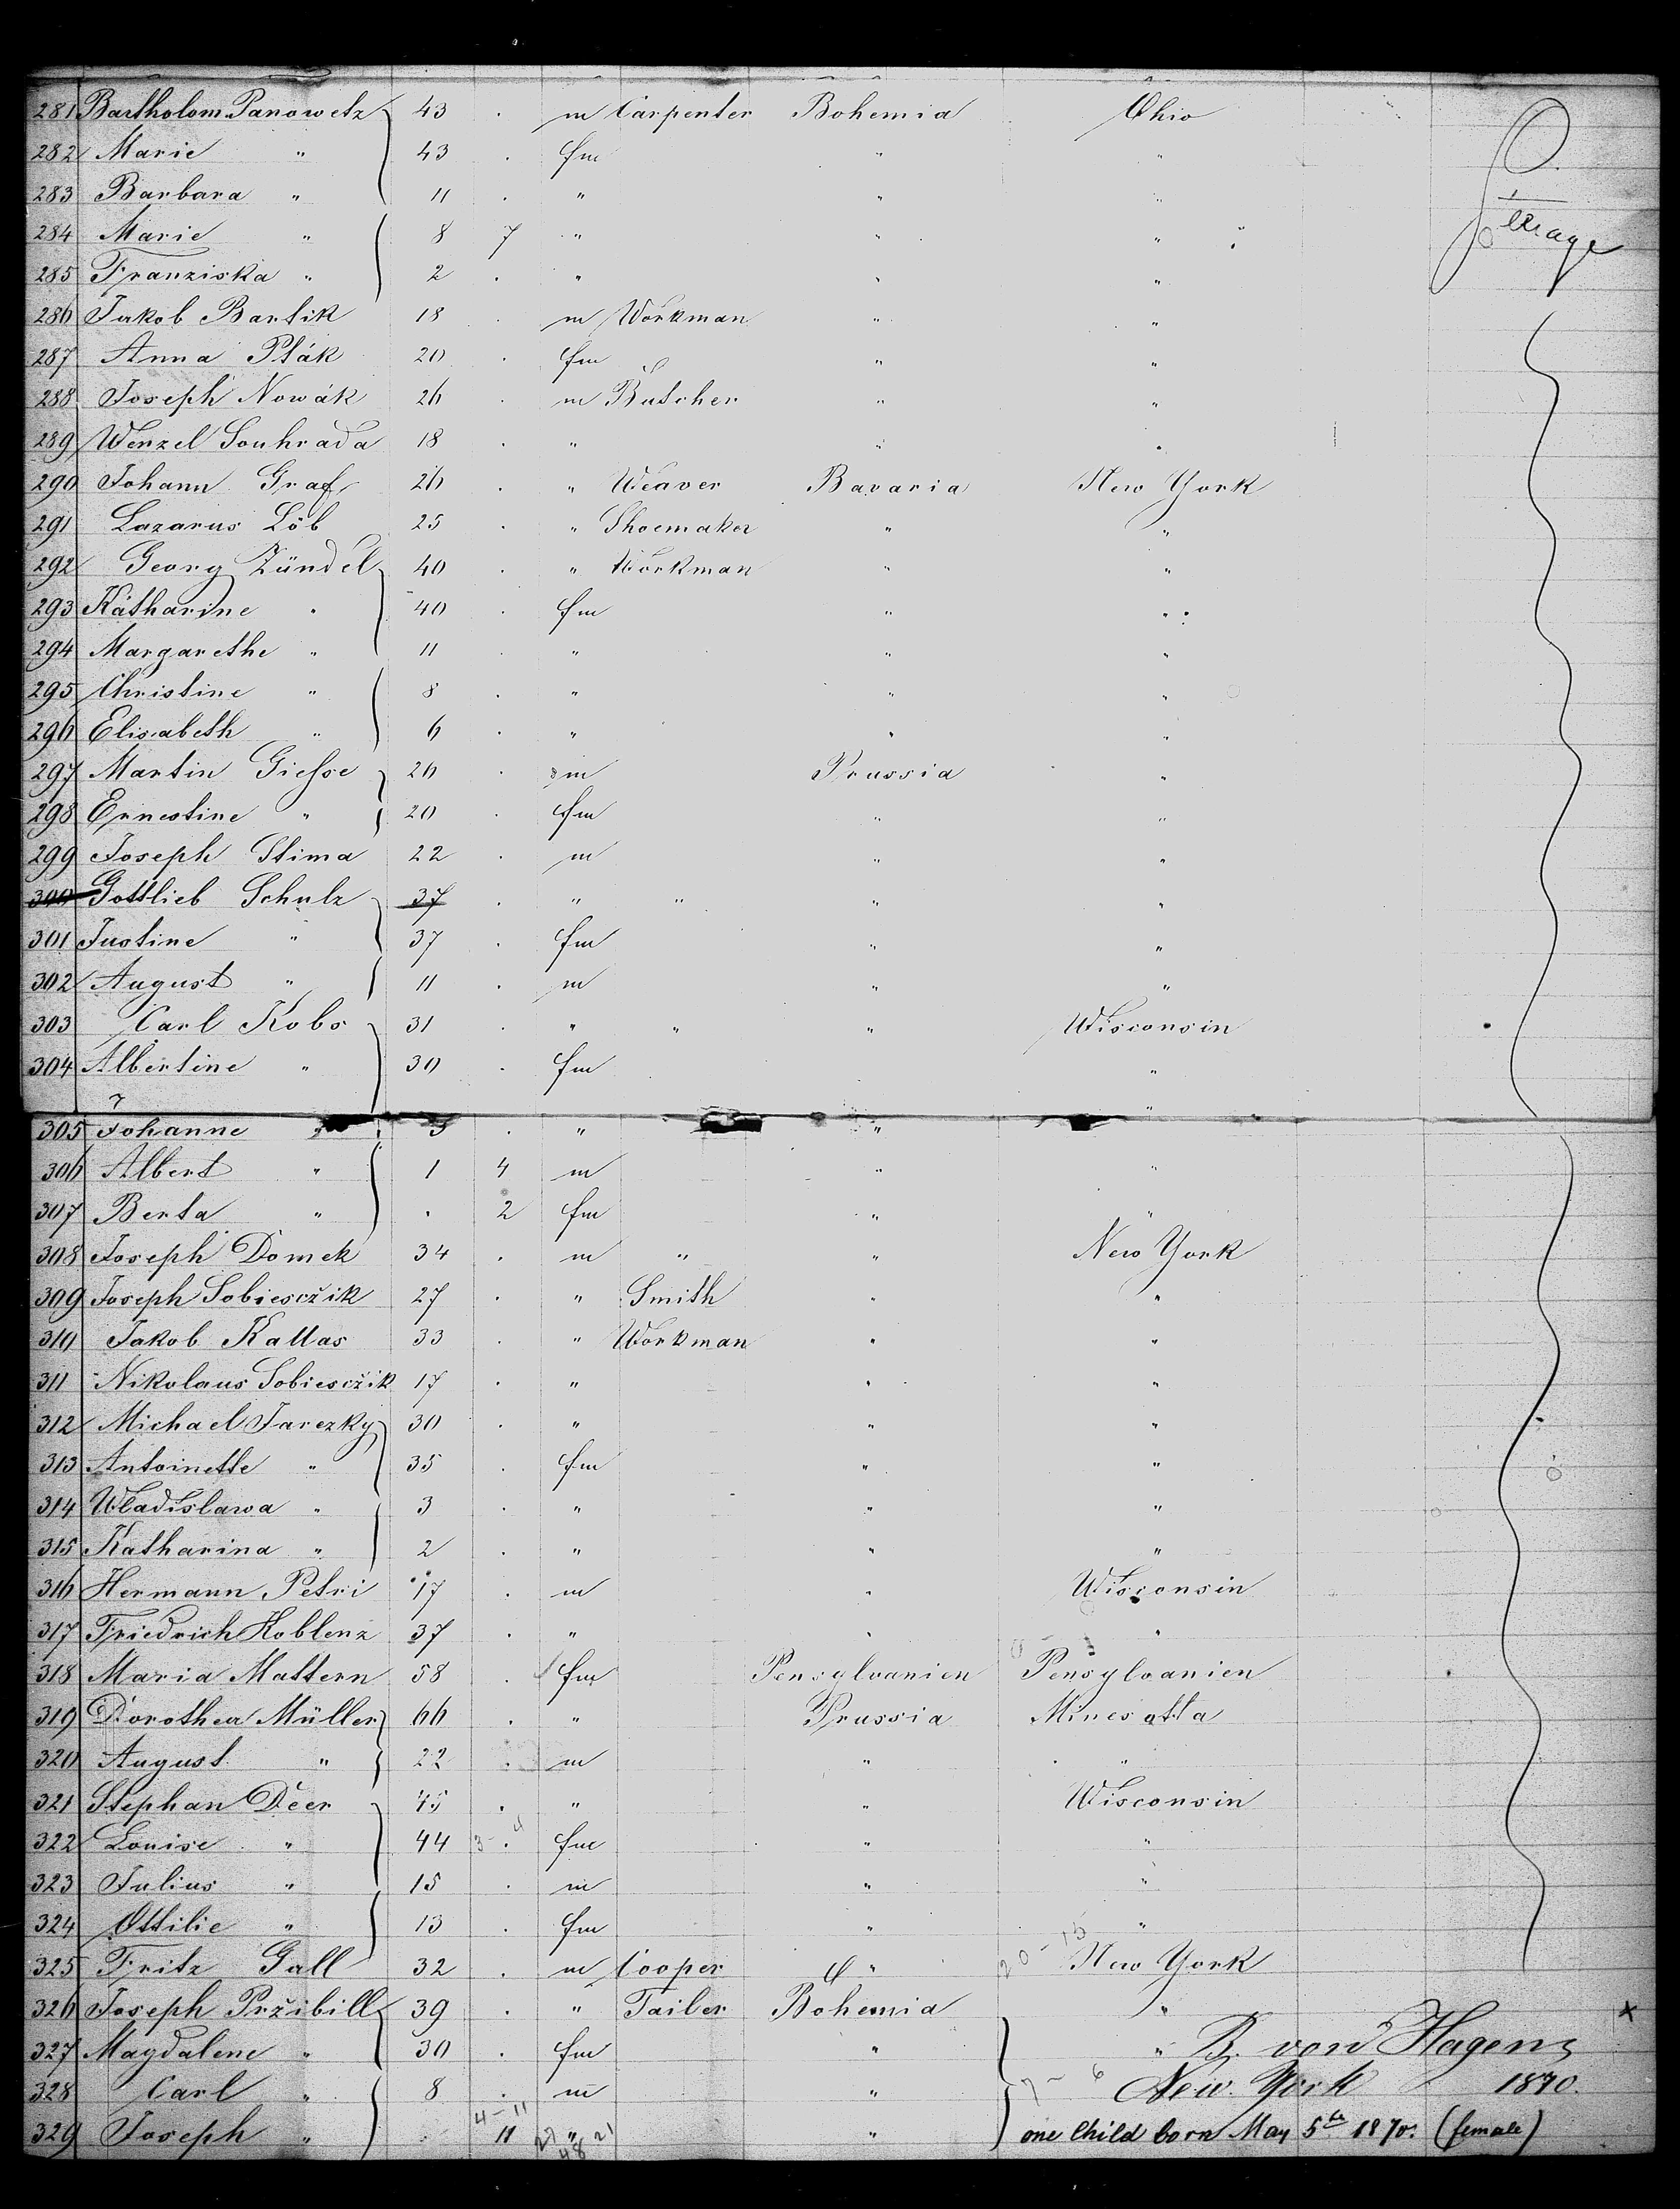 281 Bartholom. Panowetz 43 . m Carpenter Bohemia Ohio
282 Marie " 43 . fm " "
283 Barbara " 11 . " " "
284 Marie " 8 7 " " "
285 Franziska " 2 . " " "
286 Jakob Bartik 18 . m Workman " "
287 Anna Pták 20 . fm " "
288 Joseph Nowák 26 . m Butcher " "
289 Wenzel Souhrada 18 . " " "
290 Johann Graf 26 . " Weaver Bavaria New York
291 Lazarus Löb 25 . " Shoemaker " "
292 Georg Zündel 40 . " Workman " "
293 Katharine " 40 . fm " "
294 Margarethe " 11 . " " "
295 Christine " 8 . " " "
296 Elisabeth " 6 . " " "
297 Martin Giesse 26 . m Prussia "
298 Ernestine " 20 . fm " "
299 Joseph Stima 22 . m " "
300 Gottlieb Schulz 37 . " " " "
301 Justine " 37 . fm " "
302 August " 11 . m " "
303 Carl Kobs 31 . " " " Wisconsin
304 Albertine " 30 . fm "
305 Johanne " . " " "
306 Albert " 1 4 m " "
307 Berta " . 2 fm " "
308 Joseph Domek 34 . m " " New York
309 Joseph Sobiesczik 27 . " Smith " "
310 Jakob Kallas 33 . " Workman " "
311 Nikolaus Sobiesczik 17 . " " "
312 Michael Jarezky 30 . " " "
313 Antoinette " 35 . fm " "
314 Wladislawa " 3 . " " "
315 Katharina " 2 . " " "
316 Hermann Petri 17 . m " Wisconsin
317 Friedrich Koblenz 37 . " " "
318 Maria Mattern 58 . fm Pensylvanien Pensylvanien
319 Dorothea Müller 66 . " Prussia Minesotta
320 August " 22 . m " "
321 Stephan Deer 45 . " " Wisconsin
322 Louise " 44 . fm " "
323 Julius " 15 . m " "
324 Ottilie " 13 . fm " "
325 Fritz Gall 32 . m Cooper " New York
326 Joseph Pržibill 39 . " Tailer Bohemia "
327 Magdalene " 30 . fm " " B. von Hagen
328 Carl " 8 . m " New York 1870.
329 Joseph " 11 " " one Child born May 5th 1870. (female)